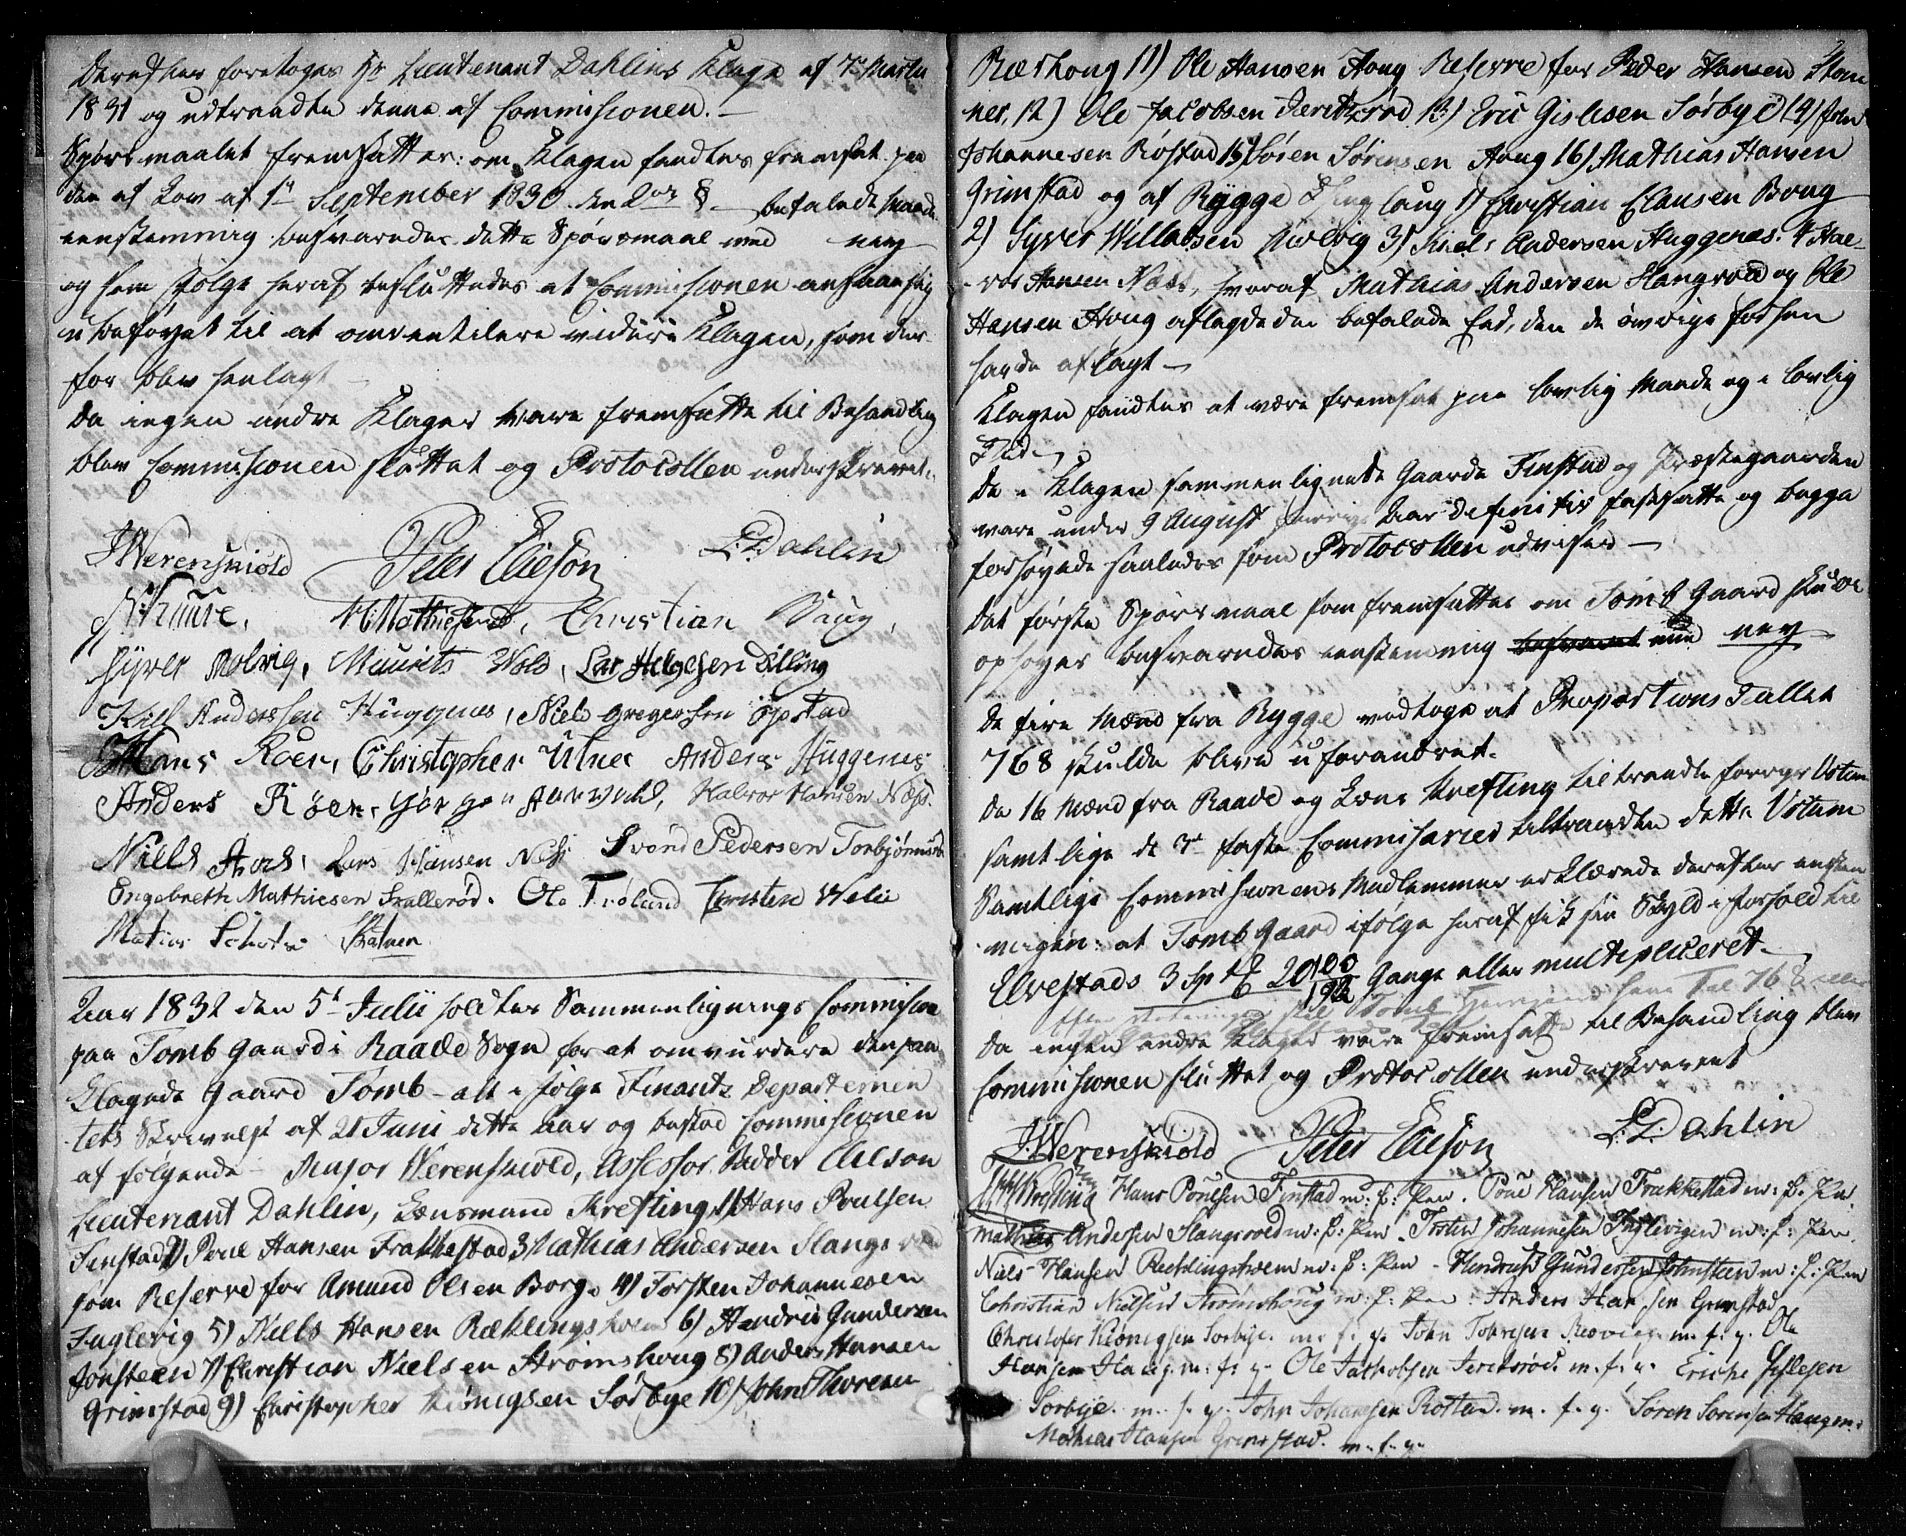 Derefter foretoges Hr Lieutienant Dahlins Klage af 7de Martii
1831 og udtraadte denne af Commissionen. —
Spørsmaalet fremsatt er: om Klagen fandtes fremsat paa
den af Lov af 1ste September 1830 dens 2den § befalede Maade
eenstemmig besvaredes dette Spørsmaal med ney
og som Følge heraf besluttedes at Commissionen ansaae sig
ubeføyet til at omventilere videre Klagen, som der-
for blev henlagt —
Da ingen andre Klager vare fremsatte til Behandling
blev Commissionen sluttet og Protocollen underskrevet.
JWerenskiold Peter Elieson L: Dahlin
M: Mathiesen, Christian Boug,
Syver Molvig, Maurits Wold, Lar Helgesen Dilling
Kiel Anderssen Huggenes, Niels Gregersen Opstad
Hans Roer, Christopher Utne Anders Huggenes
Anders Røer, Halvor Hansen Næss.
Niels Lars Hansen Næss Svend Pedersen Torbjørnsrød
Engebreth Mathiesen Trollerød. Ole Frølund Christen Welie
Aar 1832 den 5te Julii holdtes Sammenlignings Commission
paa Tomb Gaard i Raade Sogn for at omvurdere den paa
klagede Gaard Tomb - alt i følge Finantz Departemen
tets Skrivelse af 21 Juni dette Aar og bestod Commissionen
af følgende Major Werenskiold, Assessor Peder Elieson
Lieutenant Dahlin, Lænsmand Krefting, 1) Hans Poulsen
Finstad 2) Poul Hansen Frakkestad 3 Mathias Andersen Slangsvold
som Reserve for Amund Olsen Borge 4) Torsten Johannesen
Fuglevig 5) Niels Hansen Ræklingsholm 6) Hendric Gundersen
Jonsteen 7) Christian Nielsen Strømshoug 8) Anders Hansen
Grimstad 9) Christopher Kiønigsen Sørbye 10) John Thoresen
Rørhoug 11) Ole Hansen Houg Reserve for Peder Hansen Stom
ner, 12) Ole Jacobsen Jeretsrød 13) Eric Gislesen Sørbye 14) John
Johannesen Rostad 15) Søren Sørensen Houg 16) Mathias Hansen
Grimstad og af Rygge Thinglaug 1) Christian Clausen Boug
2) Syver Willabsen Molvig 3) Kiel Andersen Huggenæs. 4 Hal-
vor Hansen Næss, hvoraf Mathias Andersen Slangsvold og Ole
Hansen Houg aflagde den befalede Eed, den de øvrige forhen
havde aflagt —
Klagen fandtes at være fremsat paa lovlig Maade og i lovlig
Tid —
De i Klagen sammenlignede Gaarde Finstad og Præstegaarden
vare under 9 August forrige Aar definitiv fastsatte og begge
forhøyede saaledes som Protocollen udviser —
Det første Spørsmaal som fremsattes om Tomb Gaard skulde
ophøyes besvaredes eenstemmig med ney
De fire Mænd fra Rygge vedtoge at Proportions Tallet
768 skulde blive uforandret.
De 16 Mænd fra Raade og Lens Krefting tiltraadte forrige Votum
samtlige de 3de faste Commisarier tiltraadte dette Votum
Samtlige Commissionens Medlemmer erklærede derefter eenstem
migen: at Tomb Gaard ifølge heraf fik sin Skyld i forhold til
Elvestads 3 Sp 20 100/192 Gange eller multipliceret.
Da ingen andre Klager vare fremsatte til Behandling blev
Commissionen sluttet og Protocollen underskrevet
JWerenskiold Peter Elieson L: Dahlin
Krefting Hans Poulsen Finstad m: f: Pen. Poul Hansen Frakkestad m: f: Pen.
Mathias Andersen Slangsvold m: f: Pen - Tosten Johannesen Fuglevigen m: f: Pen.
Niels Hansen Reklingsholm m: f: Pen - Hendrich Gundersen Johnsteen m: f: Pen
Christian Nielsen Strømshoug m: f: Pen. Anders Hansen Grimstad
Christofer Kiønigsen Sorbye. m. f. p. John Torresen m. f. p. Ole
Hansen Houg. m: f: p. Ole Jackobsen Jeretsrød. m. f. p. Eriche Gislesen
Sorbye. m. f. p. John Johansen Rostad. m. f. p. Søren Sørensen Hougen.
Mathias Hansen Grimstad. m. f. p.